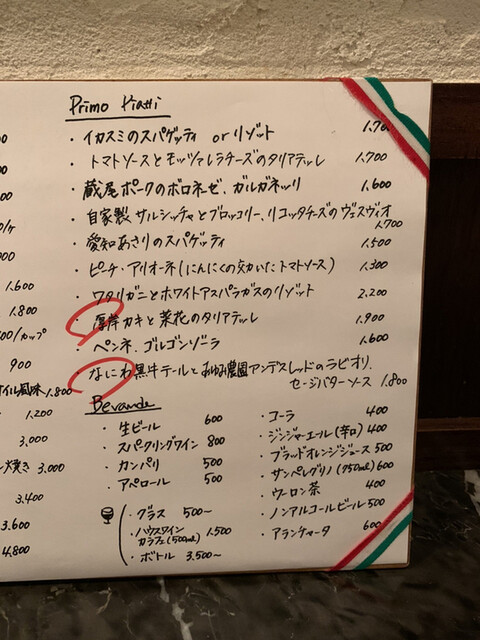 Primo Piatti
・イカスミのスパゲッティ or リゾット 1.700
・トマトソースとモッツァレラチーズのタリアテッレ 1.700
・蔵尾ポークのボロネーゼ、ガルガネッリ 1.600
・自家製サルシッチャとブロッコリー、リコッタチーズのヴェスヴィオ 1.700
・愛知あさりのスパゲッティ 1.500
・ピーチ・アリオーネ(にんにくの効いたトマトソース) 1.300
・ワタリガニとホワイトアスパラガスのリゾット 2.200
・厚岸カキと菜花のタリアテッレ 1.900
・ペンネ、ゴルゴンゾーラ 1.600
・なにわ黒牛テールとあゆみ農園アンデスレッドのラビオリ、
セージバターソース 1.800
1.600
1.800
/カップ
900
オイル風味 1.800
1.200
3.000
焼き 3.000
3.400
3.600
4.800
Bevande
・生ビール 600
・スパークリングワイン 800
・カンパリ 500
・アペロール 500
・グラス 500〜
・ハウスワイン
カラフェ(500ml) 1.500
・ボトル 3.500〜
・コーラ 400
・ジンジャーエール(辛口) 400
・ブラッドオレンジジュース 500
・サンペレグリノ(750ml) 600
・ウーロン茶 400
・ノンアルコールビール 500
・アランチャータ 600